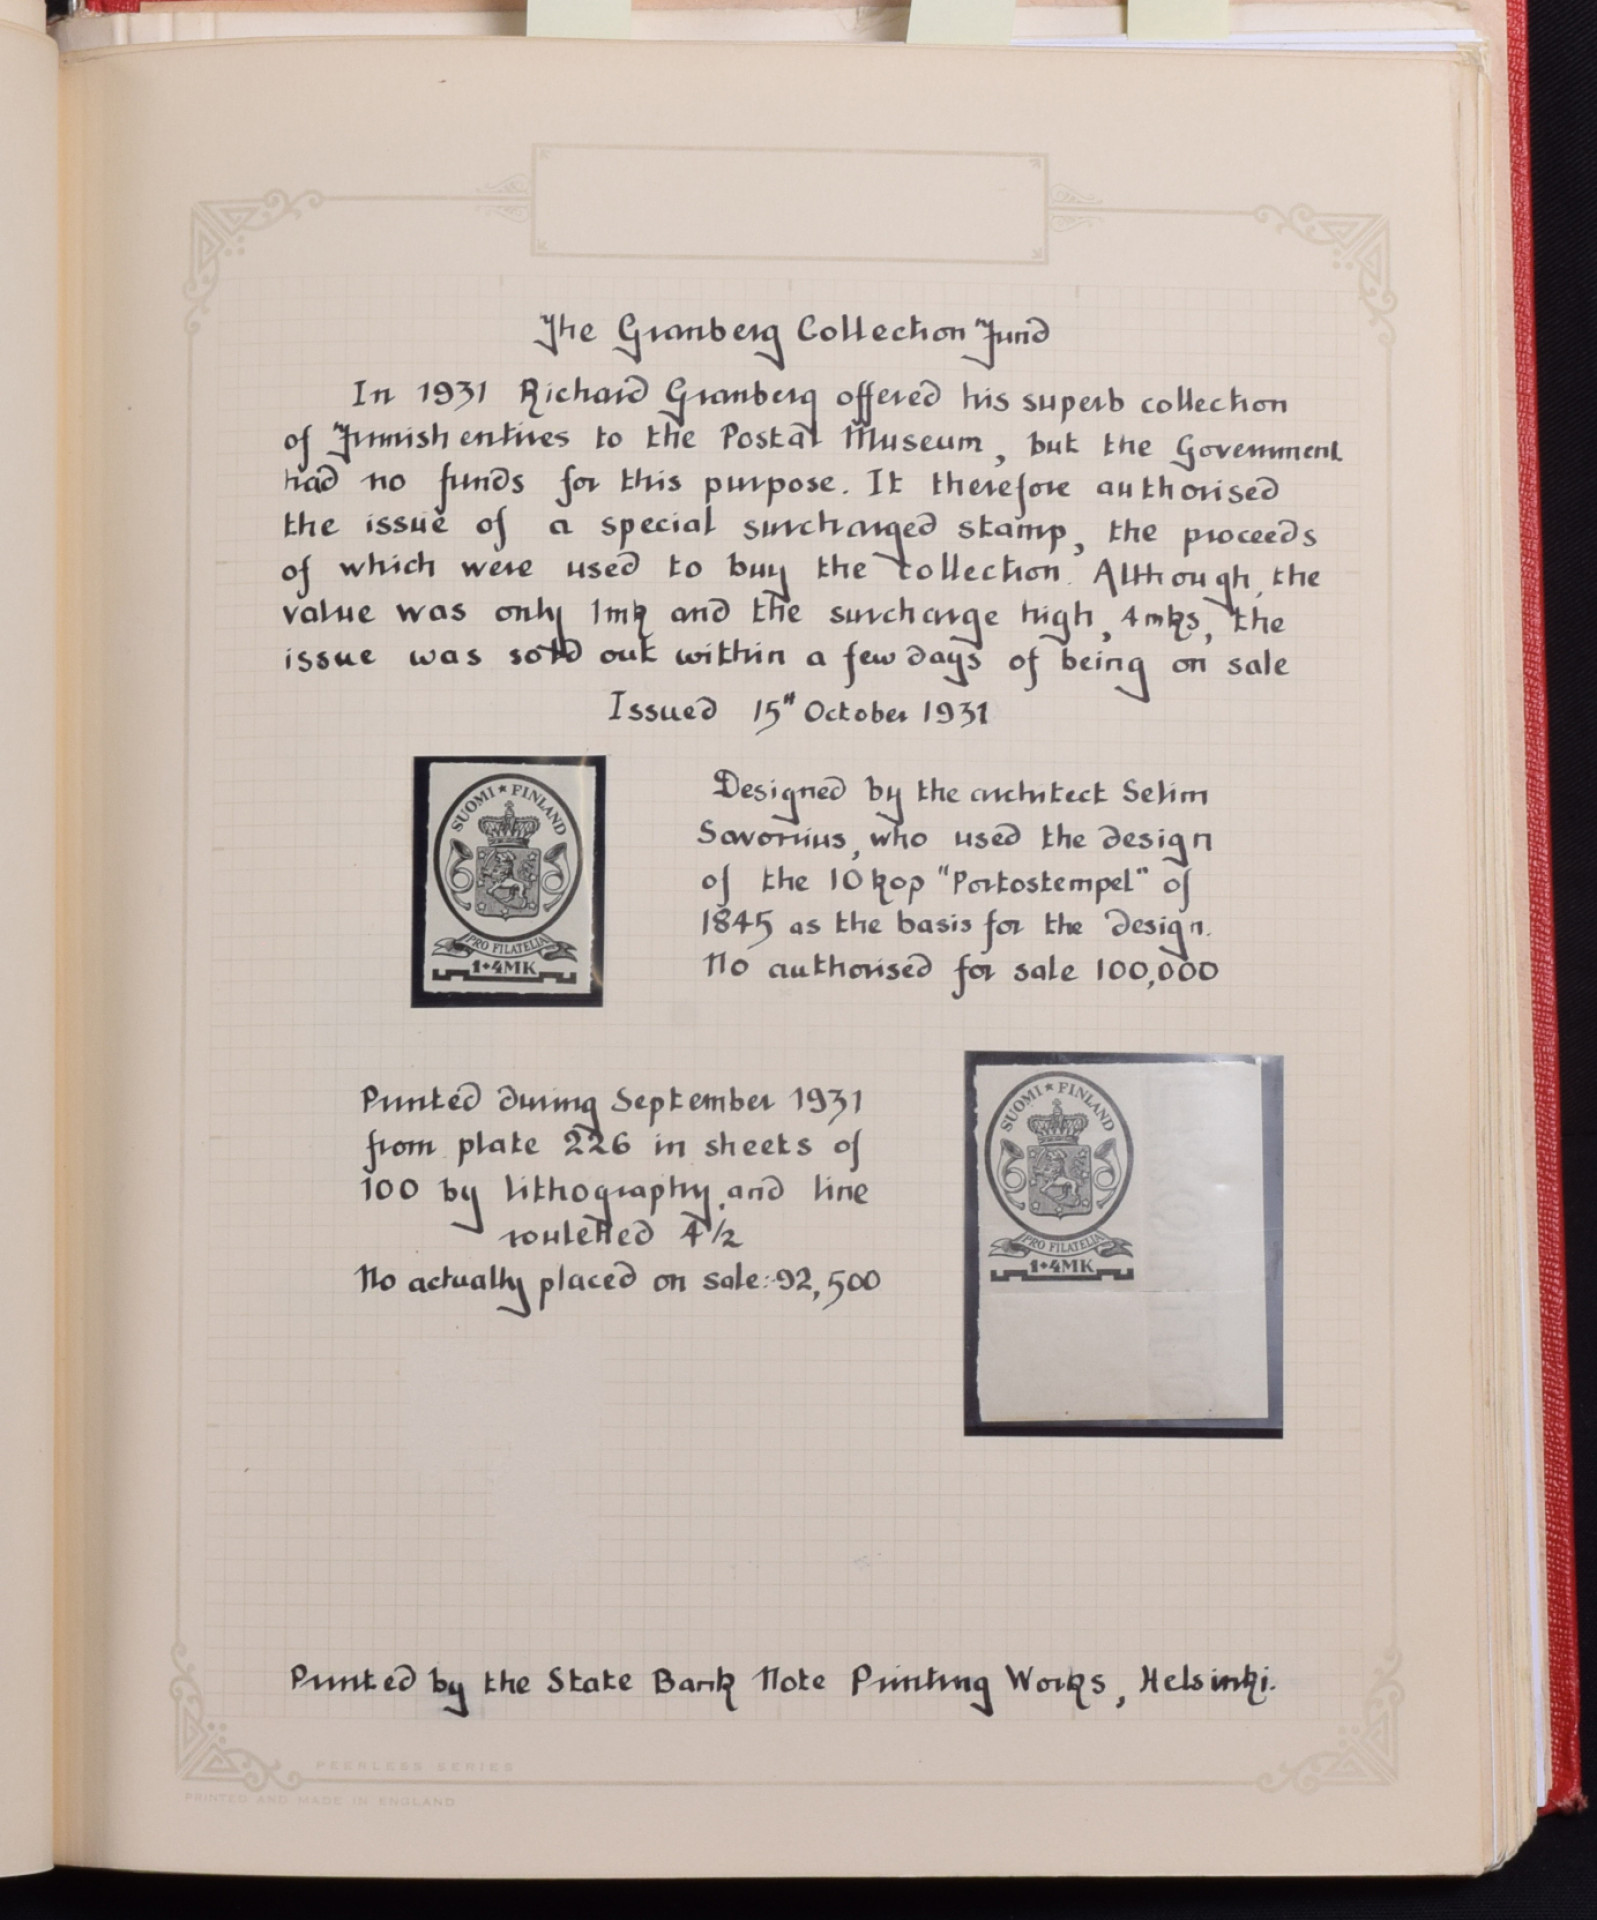 The Granberg Collection Fund
In 1931 Richard Granberg offered his superb collection
of Finnish entires to the Postal Museum, but the Government
had no funds for this purpose. It therefore authorised
the issue of a special surcharged stamp, the proceeds
of which were used to buy the collection. Although, the
value was only 1mk and the surcharge high, 4mks, the
issue was sold out within a few days of being on sale
Issued 15th October 1931
SUOMI ★ FINLAND
PRO FILATELIA
1+4MK
Designed by the architect Selim
Savonius, who used the design
of the 10 kop "Portostempel" of
1845 as the basis for the design.
No authorised for sale 100,000
Printed during September 1931
from plate 226 in sheets of
100 by lithography, and line
rouletted 4½
No actually placed on sale:-92,500
SUOMI ★ FINLAND
PRO FILATELIA
1+4MK
Printed by the State Bank Note Printing Works, Helsinki.
PEERLESS SERIES
PRINTED AND MADE IN ENGLAND